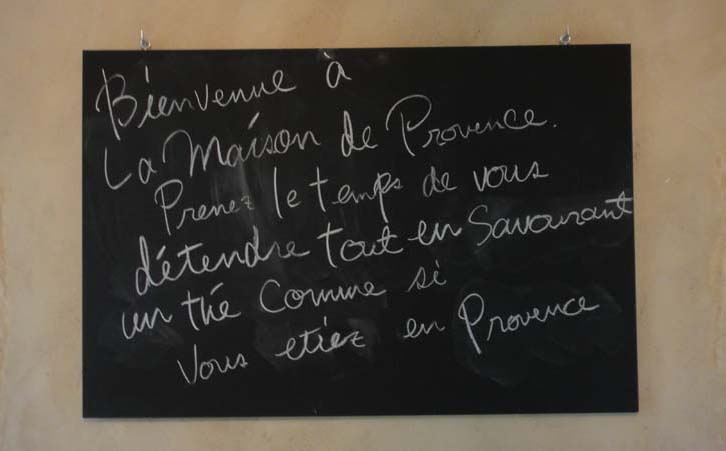 Bienvenue à
La Maison de Provence.
Prenez le temps de vous
détendre tout en Savourant
un thé Comme si
Vous etiez en Provence